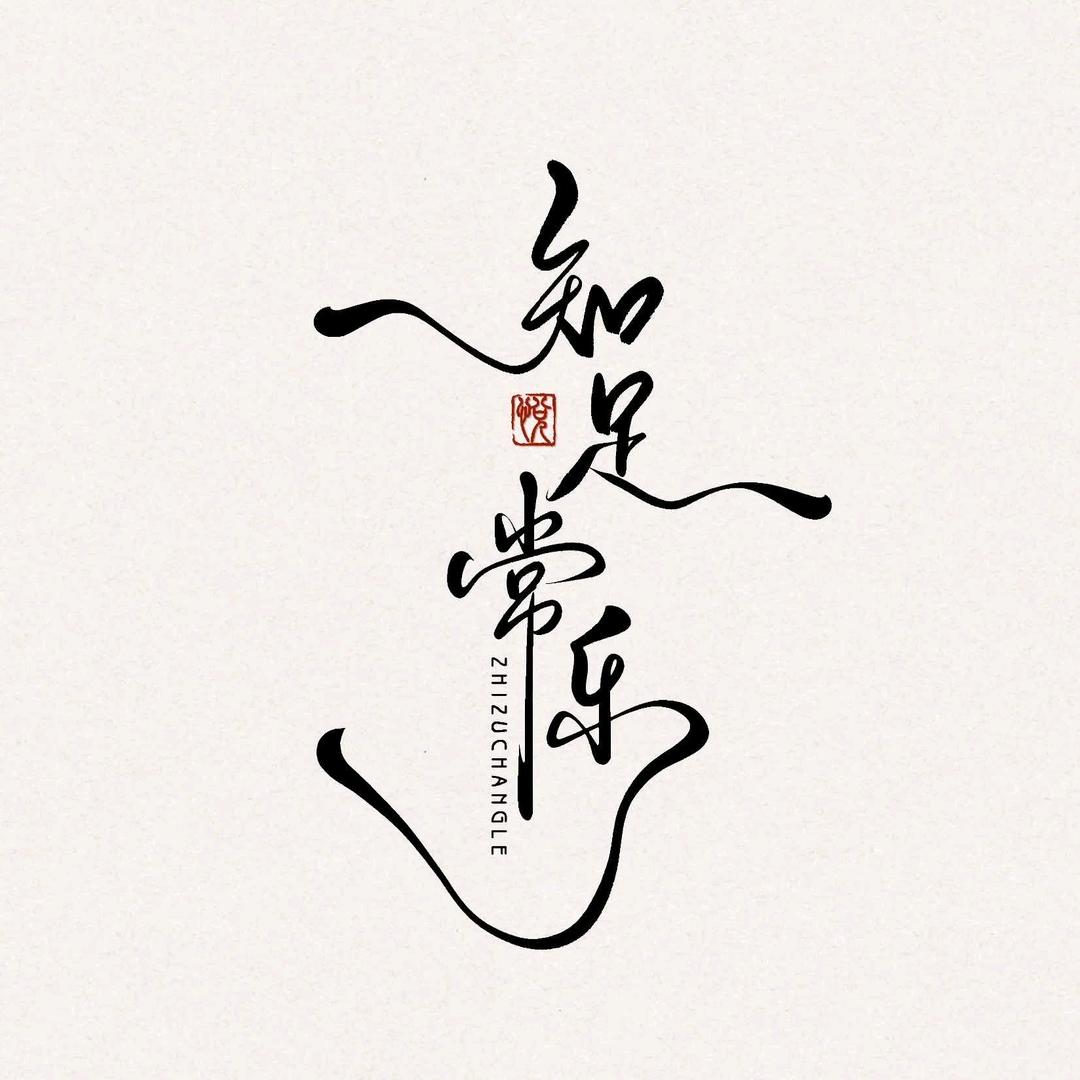 知足常乐
悦
ZHIZUCHANGLE